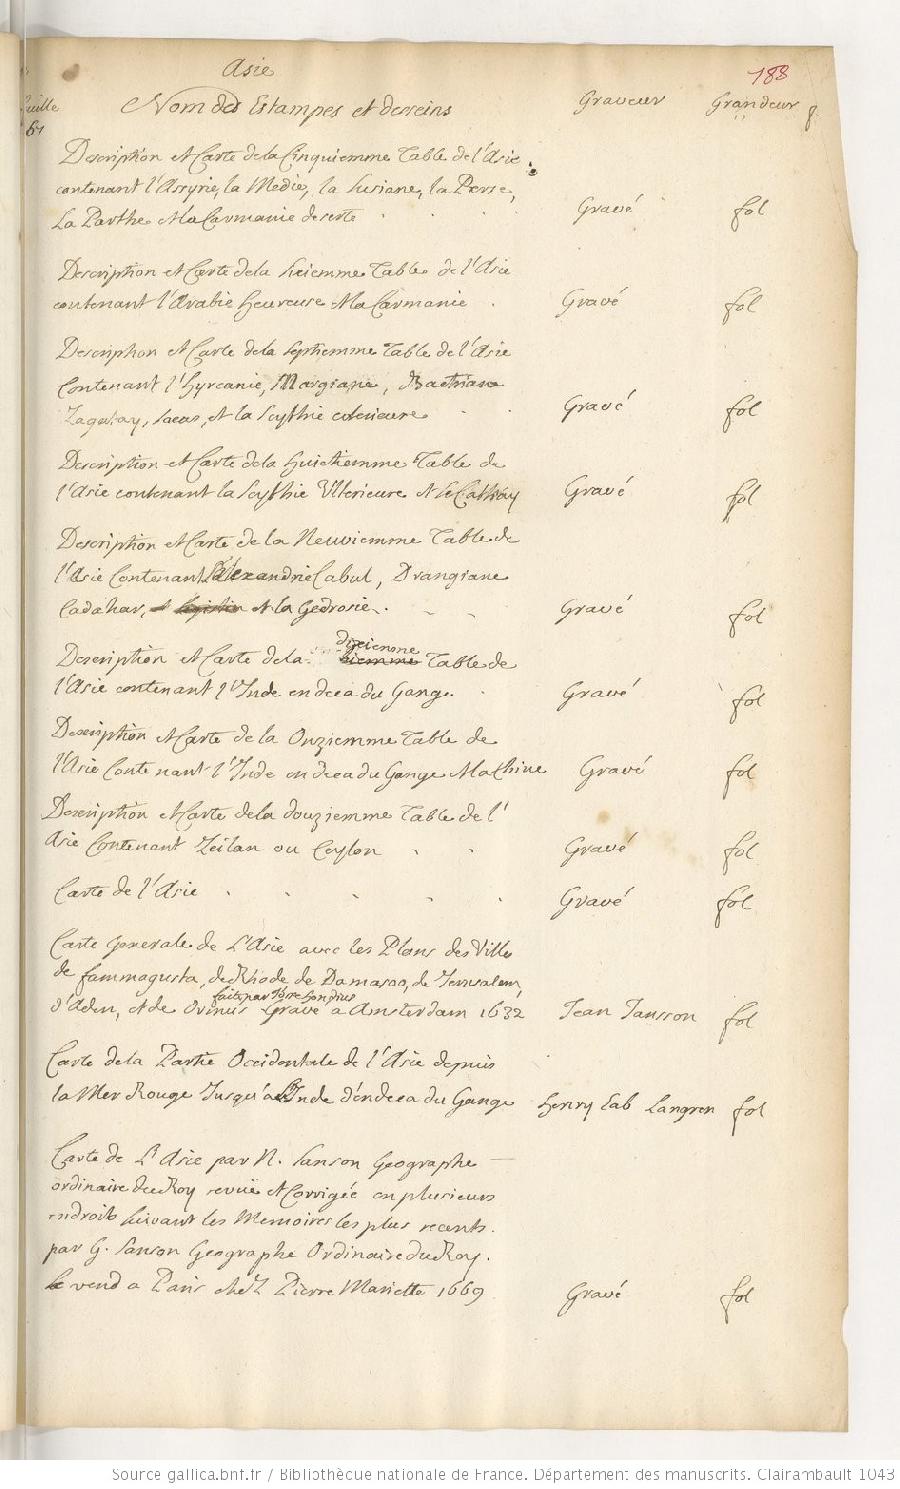 Asie
188
Nom des Estampes et desseins Graveur Grandeur
Description et Carte de la Cinquiemme Table de l'Asie
contenant l'Assyrie, la Medie, la Susiane, la Perse,
La Parthe et la Carmanie deserte Gravé fol
Description et Carte de la Sixiemme Table de l'Asie
contenant l'Arabie heureuse et la Carmanie Gravé fol
Description et Carte de la Septiemme Table de l'Asie
Contenant l'hyrcanie, Margiane, Bactriane
Zagatay, Sacas, et la Scythie citerieure Gravé fol
Description et Carte de la huictiemme Table de
l'Asie contenant la Scythie Ulterieure et le Cathay Gravé fol
Description et Carte de la Neuviemme Table de
l'Asie Contenant l'Alexandrie Cabul, Drangiane
Cadahar, et la Gedrosie. Gravé fol
Description et Carte de la dixiemme Table de
l'Asie contenant l'Inde en deca du Gange. Gravé fol
Description et Carte de la Onziemme Table de
l'Asie Contenant l'Inde en deca du Gange et la Chine Gravé fol
Description et Carte de la douziemme Table de l'
Asie Contenant Zeilan ou Ceylon Gravé fol
Carte de l'Asie Gravé fol
Carte generale de L'Asie avec les Plans des Villes
de fammagusta, de Rhode de Damasco, de Jerusalem,
faite par Josse Hondius
d'Aden, et de Ormus Gravé a Amsterdam 1632 Jean Jansson fol
Carte de la Partie Occidentale de l'Asie depuis
la Mer Rouge Jusqu'a l'Inde d'en deca du Gange Henry Lab Langren fol
Carte de L'Asie par N. Sanson Geographe
ordinaire du Roy revuë et Corrigée en plusieurs
endroits Suivant les Memoires les plus recents.
par G. Sanson Geographe Ordinaire du Roy.
se vend a Paris chez Pierre Mariette 1669 Gravé fol
Source gallica.bnf.fr / Bibliothèque nationale de France. Département des manuscrits. Clairambault 1043